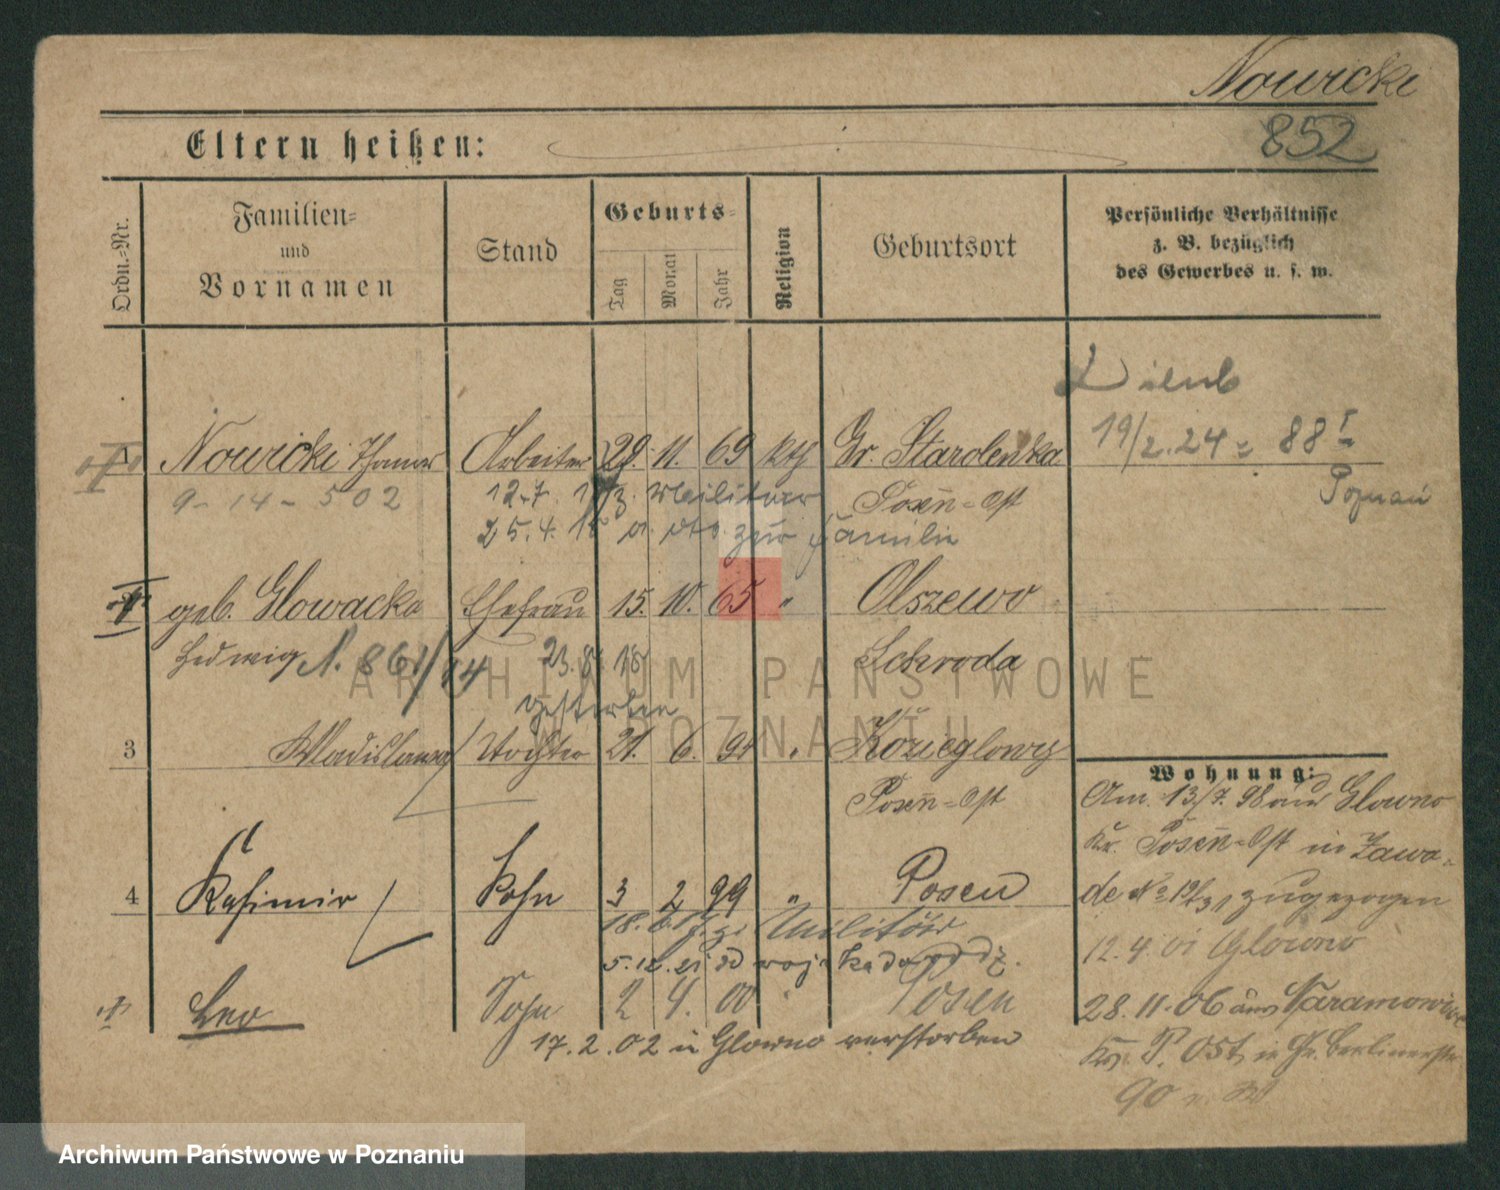 Nowicki
852
Eltern heißen:
Ordn.-Nr.
Familien-
und
Vornamen
Stand
Geburts-
Tag
Monat
Jahr
Religion
Geburtsort
Persönliche Verhältnisse
z. B. bezüglich
des Gewerbes u. s. w.
19/2.24 = 88 I
Poznań
Nowicki Thomas Arbeiter 29. 11. 69 kth Gr. Starolenka
9 - 14 - 502
Militär
Posen-Ost
25.4.18 zur Familie
geb. Glowacka Ehefrau 15. 10. 65 " Olszewo
Hedwig 861/14 23.8.18 Schroda
gestorben
3 Wladislawa Tochter 21. 6. 94 " Kozieglowy
Posen-Ost
4 Kasimir Sohn 3 2 99 " Posen
Militär
5.12. wojska
Leo Sohn 2 4. 00 " Posen
17.2.02 in Glowno verstorben
Wohnung:
Am 13/7. 98 aus Glowno
Kr. Posen-Ost in Zawa-
de No zugezogen
12.4.01 Glowno
28.11.06 aus Naramowice
Krs. P. Ost in Gr. Berlinerstr.
90
ARCHIWUM PAŃSTWOWE
W POZNANIU
Archiwum Państwowe w Poznaniu